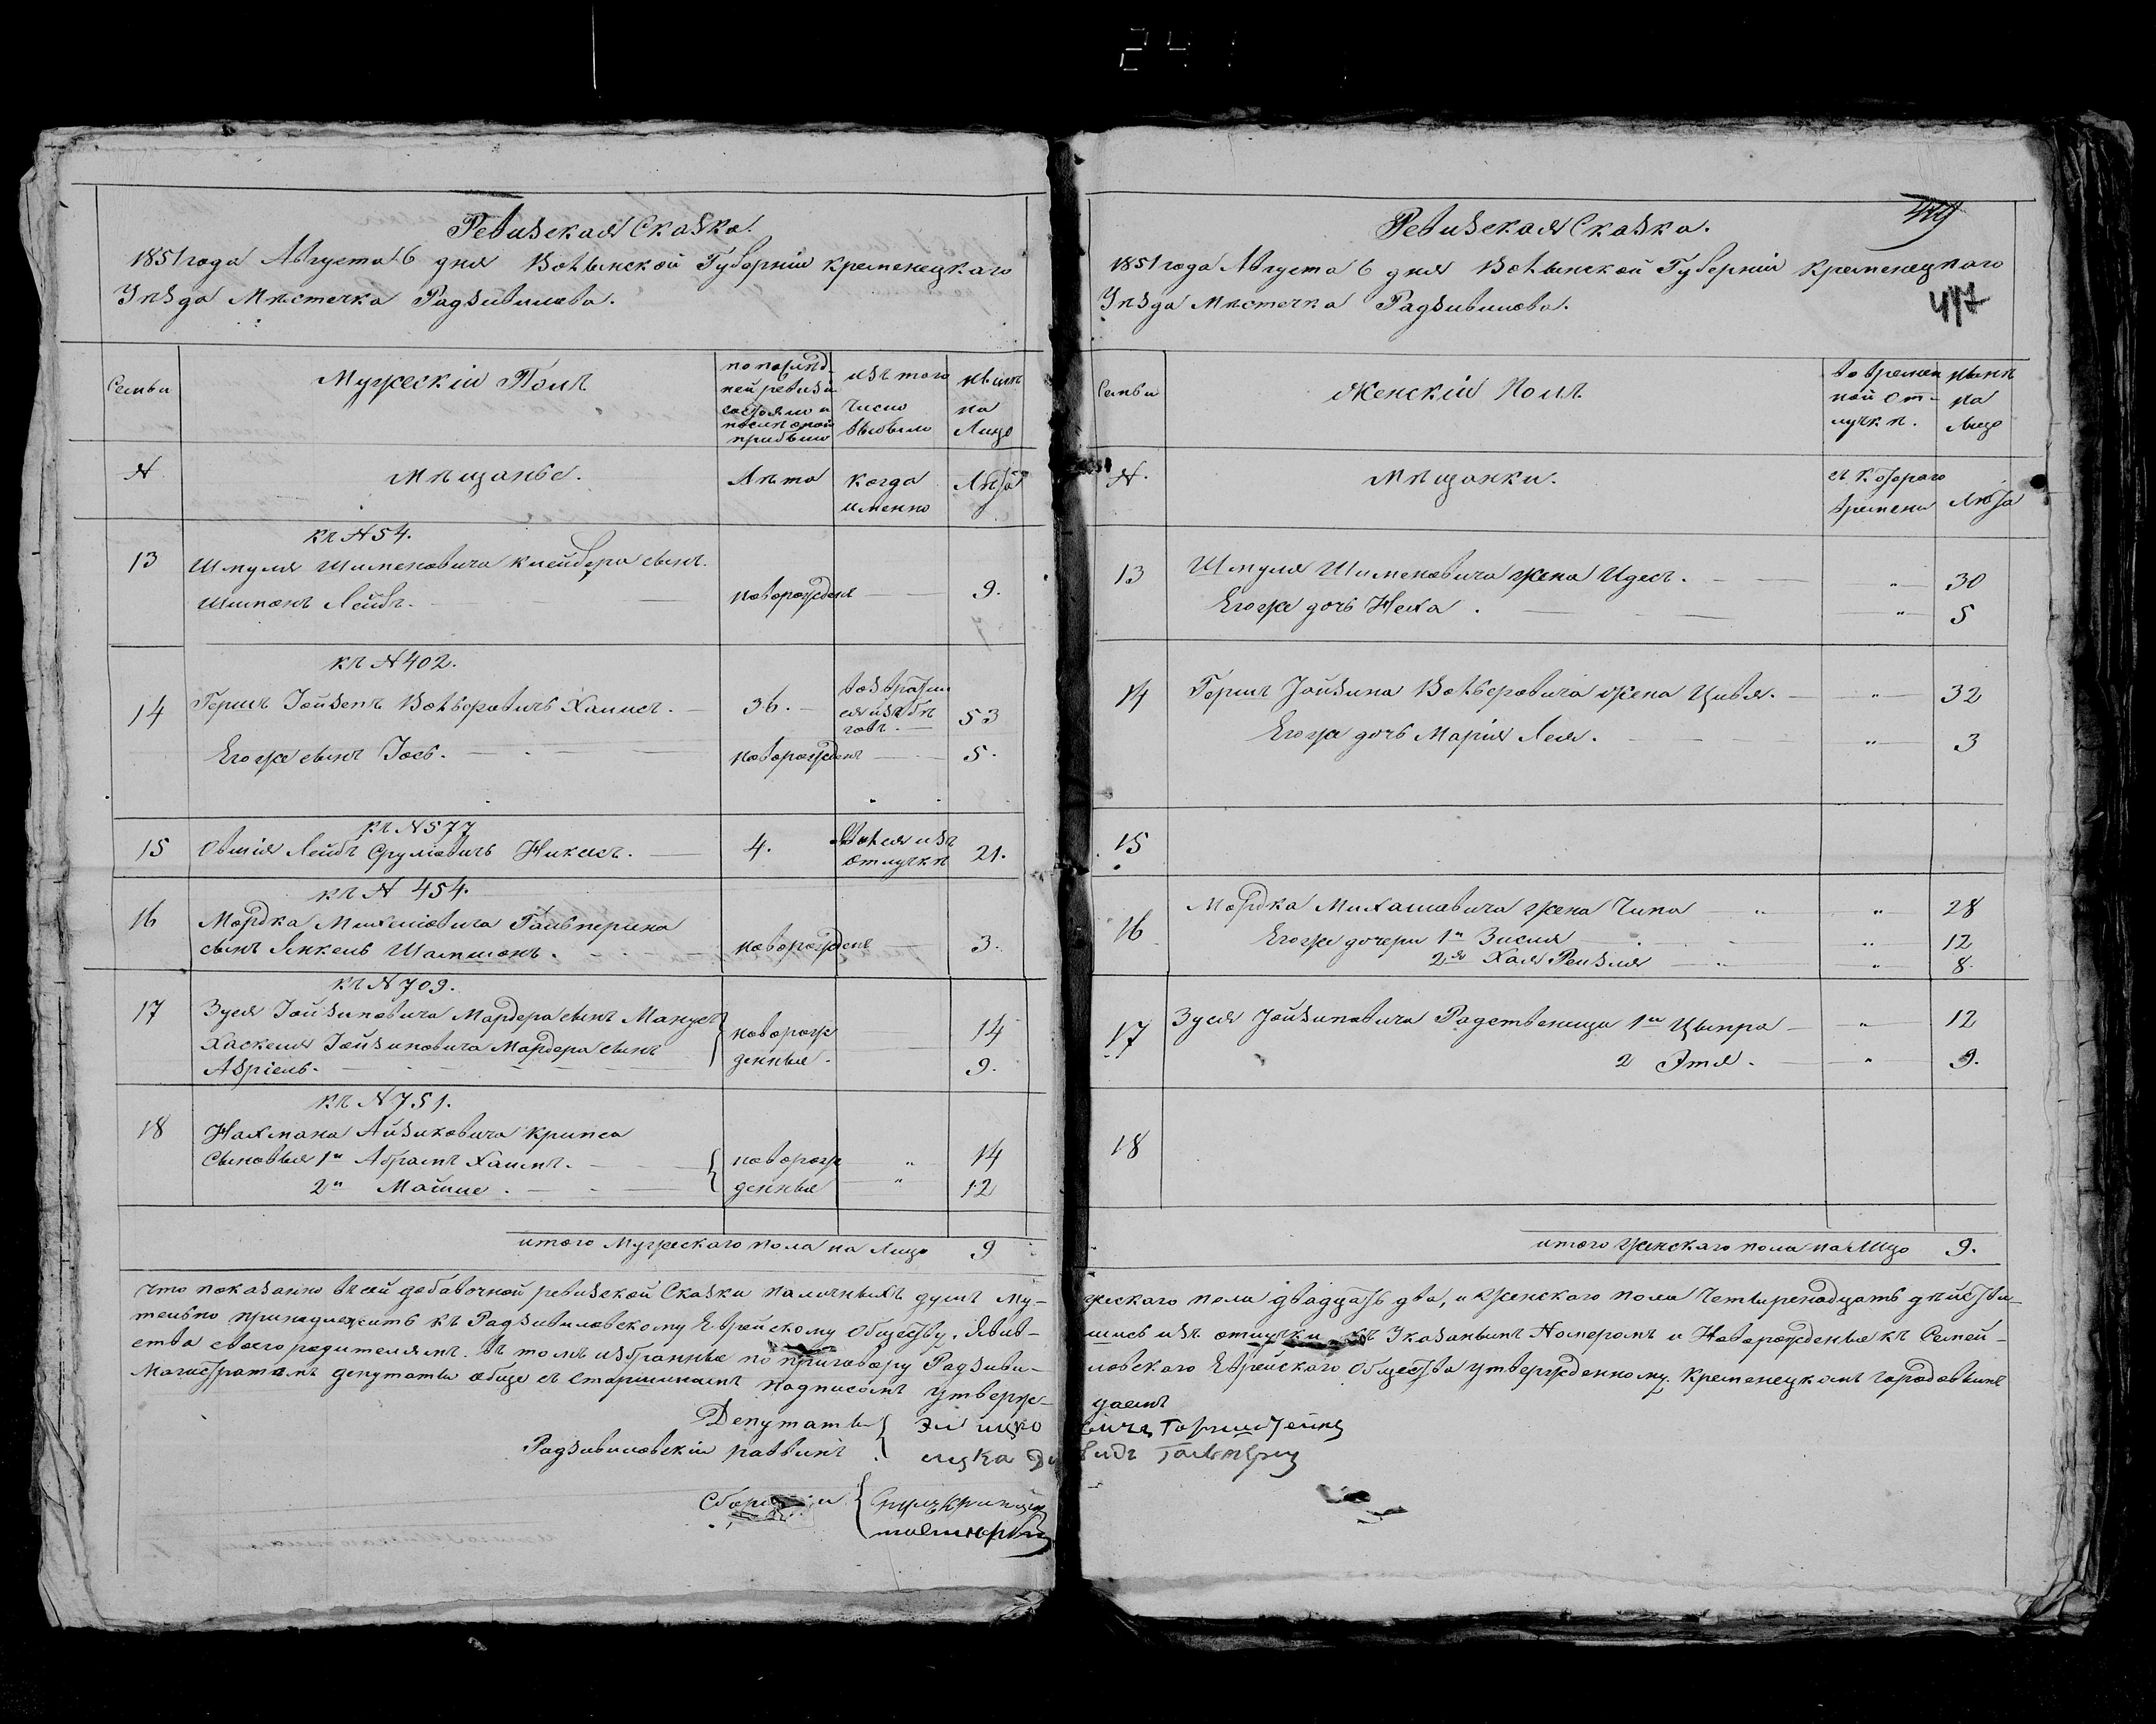 Ревизская Сказка.
1851 года Августа 6 дня Волынской Губернии Кременецкаго
Уѣзда Мѣстечка Радзивилова.
Семьи
Мужескій Полъ
по послѣд-
ней ревизіи
состояло и
послѣ оной
прибыло
изъ того
числа
выбыло
нынѣ
на
Лицо
№
Мѣщанье.
Лѣта
когда
именно
Лѣта
къ №54.
13
Шмуля Шименовича Клейбера сынъ.
Шимонъ Лейбъ.
новорожденъ
9.
къ №402.
14
Гершъ Іойзепъ Вольфовичъ
36.
возвратил
ся изъ бѣ
говъ.
53
Егоже сынъ Іось.
новорожденъ
5.
къ №577
15
Овшія Лейбъ Сруліовичъ
4.
Явился изъ
отлучки
21.
къ № 454.
16
Мордка Михеліовича Гальперина
сынъ Янкель Шамшонъ.
новорожденъ
3.
къ №709.
17
Зуся Іойзиповича Мардера сынъ
Хаскеля Іойзиповича Мардера сынъ
Азріель.
новорож
денные.
14
9.
къ №751.
18
Нахмана Айзиковича Крипса
Сыновья 1й Абрамъ Хаимъ.
2й Мошке.
новорож
денные
14
12
итого Мужескаго пола на Лицо 9
Ревизская Сказка.
449
1851 года Августа 6 дня Волынской Губерніи Кременецкаго
Уѣзда Мѣстечка Радзивилова.
447
Семьи
Женскій Полъ
во времен
ной от-
лучкѣ.
нынѣ
на
Лицо
№.
Мѣщанки.
съ котораго
времени
Лѣта
13
Шмуля Шименовича жена Идесъ. " 30
Егоже дочь Неха. " 5
14
Гершъ Іойзипа жена Цивя. " 32
Егоже дочь Марія Лея. " 3
15
16
Мордка Михашовича жена Чипа " 28
Егоже дочери 1я Зисля " 12
2я Хая Рейзля " 8.
17
Зуся Іойзиповича Родственницы 1я Ципра " 12
2 Этя. " 9.
18
итого женскаго пола на Лицо 9.
Что показанно въ сей добавочной ревизской Сказки наличныхъ душъ му-жескаго пола двадцать два, и женскаго пола Четыренадцать дѣйстви-
тельно принадлежитъ къ Радзивиловскому Еврейскому Обществу. Явив-шись изъ отлучки къ Указанымъ Номеромъ и Новорожденые къ Семей-
ства своего родителямъ. въ томъ избранные по приговору Радзиви-ловскаго Еврейскаго Общества утвержденному Кременецкомъ городовымъ
Магистратомъ депутаты обще съ старшинами подписомъ утверж-даемъ
Депутаты
Радзивиловскій раввинъ